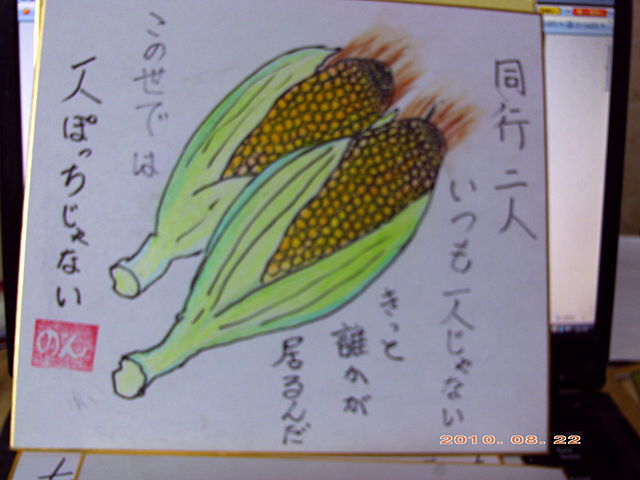 同行二人
いつも一人じゃない
きっと
誰かが
居るんだ
この世では
一人ぽっちじゃない
のん
2010.08.22